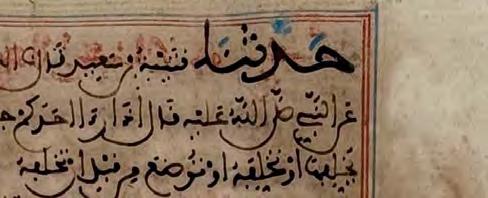 حدثنا قتيبة بن سعيد قال
عن النبي صلى الله عليه قال إذا رأى أحدكم
يخلفها أو تخلفه أو توضع من قبل أن تخلفه